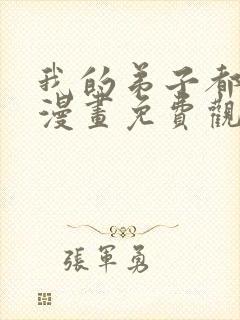 我的弟子都
漫畫免費觀
張軍勇